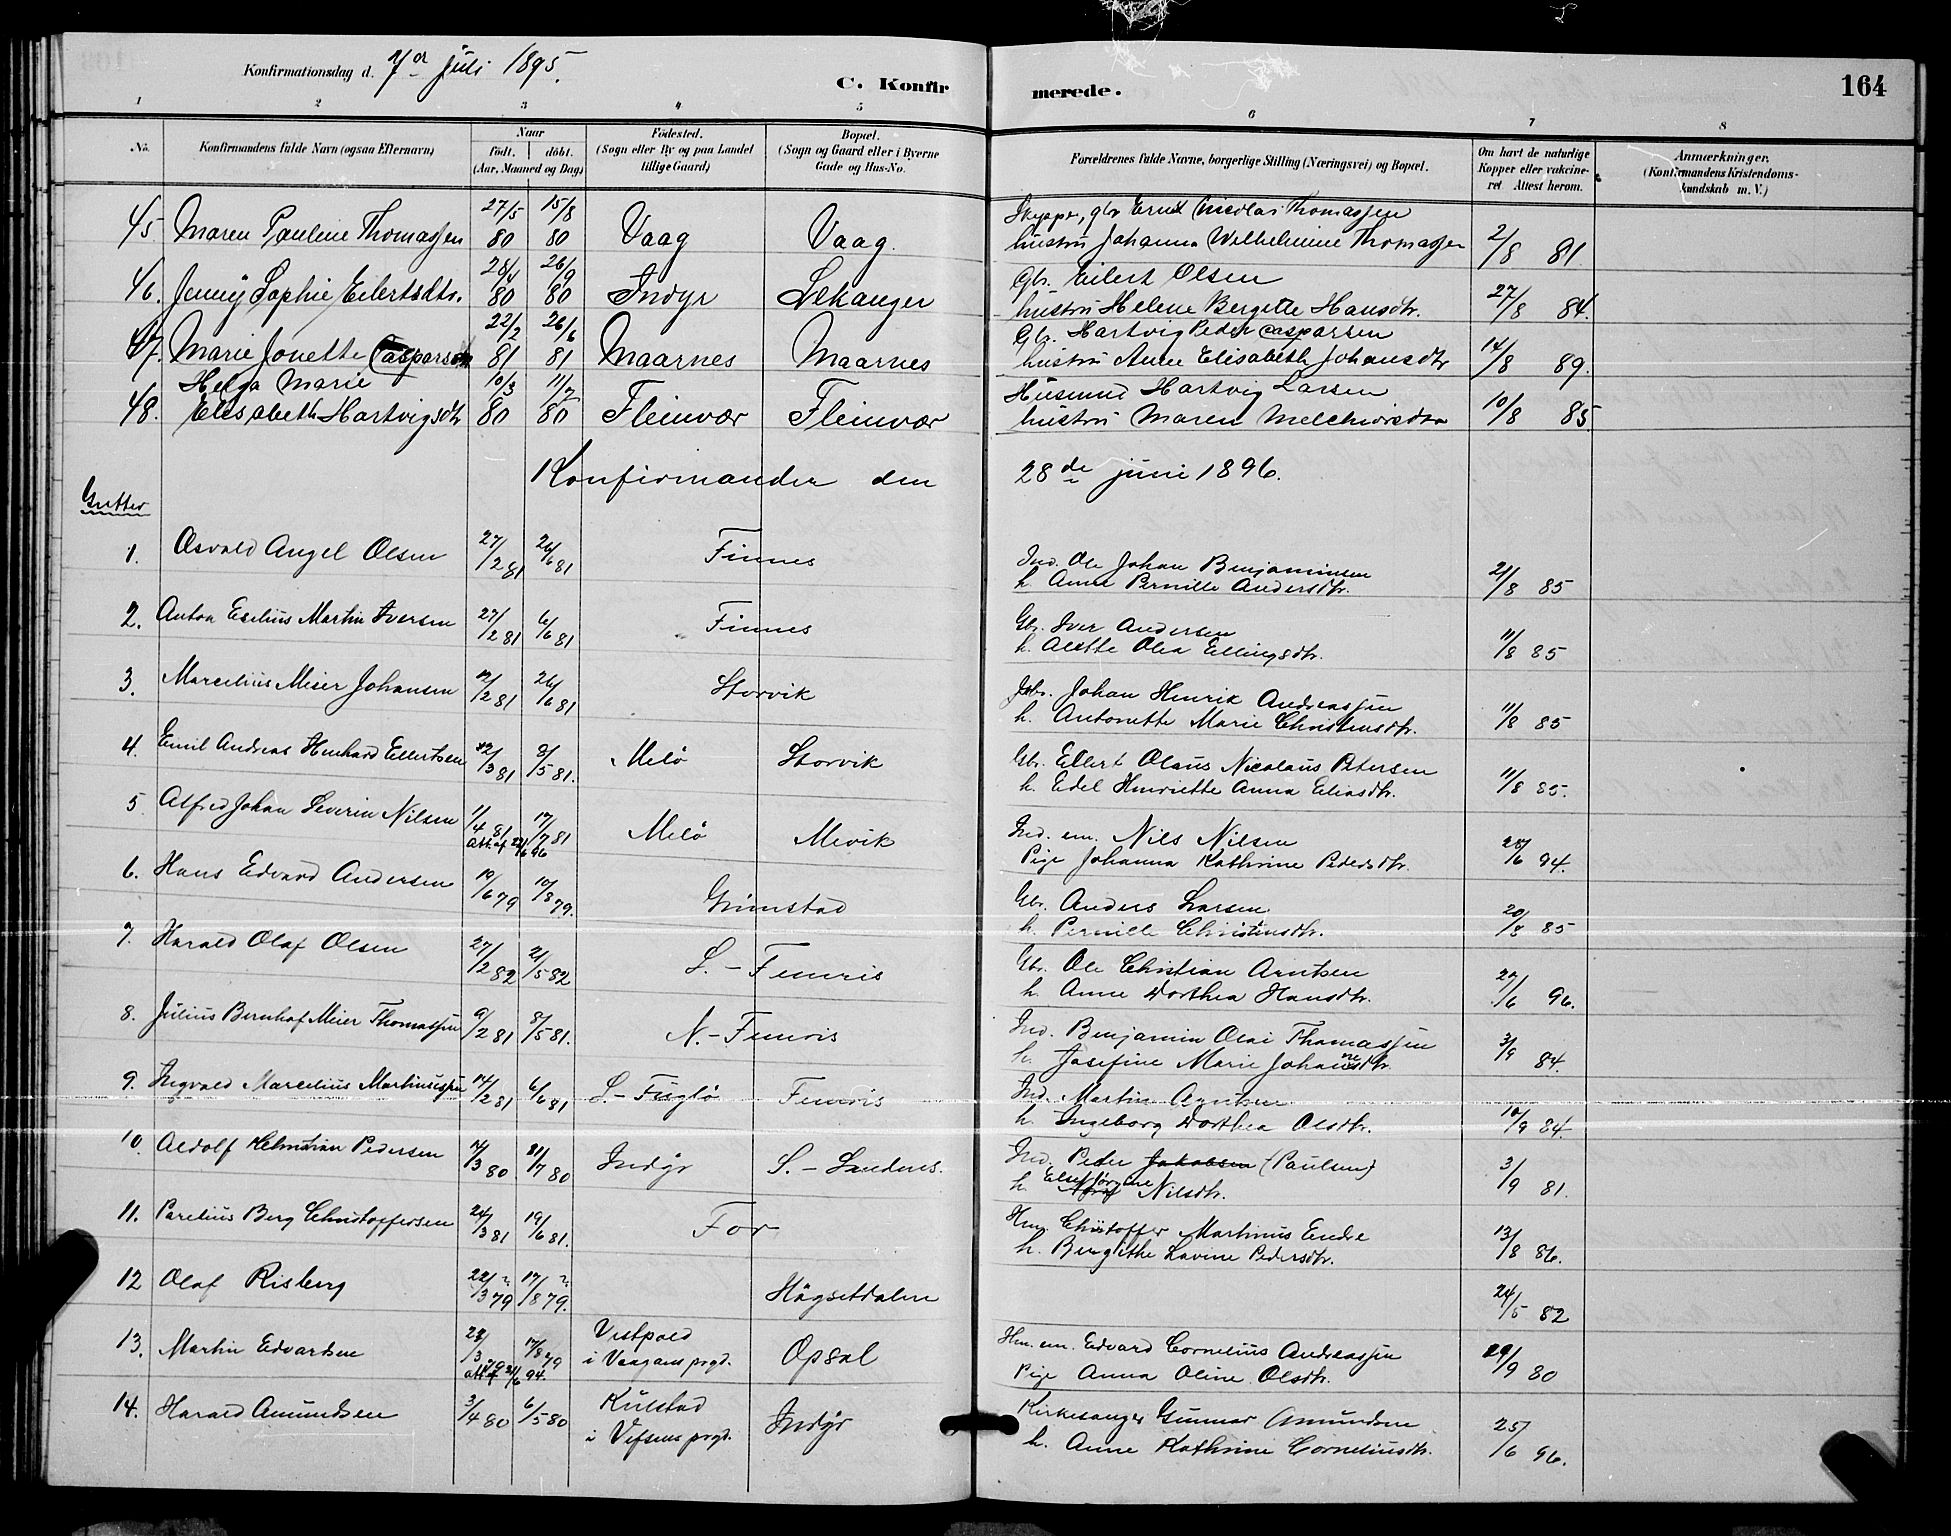 Konfirmationsdag d. 7de juli 1895.
C. Konfirmerede.
164
1 2 3 4 5 6 7 8
No.
Konfirmandens fulde Navn (ogsaa Efternavn)
Naar
födt. döbt.
(Aar, Maaned og Dag)
Födested.
(Sogn eller By og paa Landet
tillige Gaard)
Bopæl.
(Sogn og Gaard eller i Byerne
Gade og Hus-No.
Forældrenes fulde Navne, borgerlige Stilling (Næringsvei) og Bopæl.
Om havt de naturlige
Kopper eller vakcine-
ret Attest herom.
Anmærkninger.
(Konfirmandens Kristendoms-
kundskab m. V.)
45. Maren Pauline Thomassen 27/5 80 15/8 80 Vaag Vaag.
Skypper, gbr Ernst Nicolai Thomassen
hustru Johanna Wilhelmine Thomassen 2/8 81
46. Jenny Sophie Eilertsdtr. 28/1 80 26/9 80 Indyr Selsanger
Gbr. Eilert Olsen
hustru Helene Bergette Hansdtr. 27/8 84.
47. Marie Jonette Casparsen 22/2 81 26/6 81 Maarnes Maarnes
Gbr. Hartvig Peder Casparsen
hustru Anne Elisabeth Johansdtr 14/8 89.
48. Helga Marie
Elisabeth Hartvigsdtr 10/3 80 11/7 80 Fleinvær Fleinvær
Husmand Hartvig Larsen
hustru Maren Melchiorsdtr 10/8 85.
Konfirmander den 28de juni 1896.
Gutter
1. Osvald Angel Olsen 27/2 81 26/6 81 Finnes
Ind. Ole Johan Benjaminsen
h. Anna Pernille Andersdtr. 21/8 85
2. Anton Eselius Martin Iversen 27/2 81 6/6 81 Finnes
Gbr. Iver Andersen
h. Alette Olea Ellingsdtr. 11/8 85
3. Marcelius Meier Johansen 12/2 81 26/6 81 Storvik
Gbr. Johan Henrik Andreassen
h. Antonette Marie Christensdtr. 11/8 85
4. Emil Andreas Henhard Ellertsen 12/3 81 8/5 81. Melö Storvik
Gbr. Ellert Olaus Nicolaus Petersen
h. Edel Henriette Anna Eliasdtr. 11/8 85.
5 Alfred Johan Severin Nilsen 1/4 81 17/7 81 Melö Mevik
Att. af 22/6 96
Ind. em. Nils Nilsen
Pige Johanna Kathrine Pedersdtr. 20/6 94.
6. Hans Edvard Andersen 19/6 79 10/8 79. Grimstad
Gbr. Anders Larsen
h. Pernille Christensdtr. 20/8 85
7. Harald Olaf Olsen 27/2 82 21/5 82 S. - Femris
Gbr. Ole Christian Arntsen
h. Anne Dorthea Hansdtr. 27/6 96.
8. Julius Bernhof Meier Thomassen 9/2 81 8/5 81. N. - Femris
Ind. Benjamin Olai Thomassen
h. Josefine Marie Johannesdtr. 3/9 84.
9. Ingvald Marcelius Martinussen 14/2 81 6/6 81 S. - Fuglö Femris
Ind. Martin Arntsen
h. Ingeborg Dorthea Olsdtr. 10/9 84.
10. Aldolf Christian Pedersen 14/3 80 31/7 80 Indyr S. - Sandnes.
Ind. Peder Jakobsen (Paulsen)
h. Nilsdtr. 3/9 81.
11. Parelius Berg Christoffersen 24/3 81 19/6 81. For
Hm. Christoffer Martinus Endre
h. Bergithe Lavine Pedersdtr. 13/8 86.
12 Olaf Risberg 22/3 79 ? 17/8 79. ? Högsetdalen 24/5 82
13. Martin Edvardsen 28/3 79 17/8 79 Vestpold
i Vaagans prgd. Opsal
Att. af 21/6 94.
Hm. em. Edvard Cornelius Andreassen
Pige Anna Oline Olsdtr. 29/9 80
14. Harald Amundsen 3/4 80 6/5 80 Kulstad
i Vefsens prgd. Indyr
Kirkesanger Gunnar Amundsen
h. Anne Kathrine Corneliusdtr. 25/6 96.